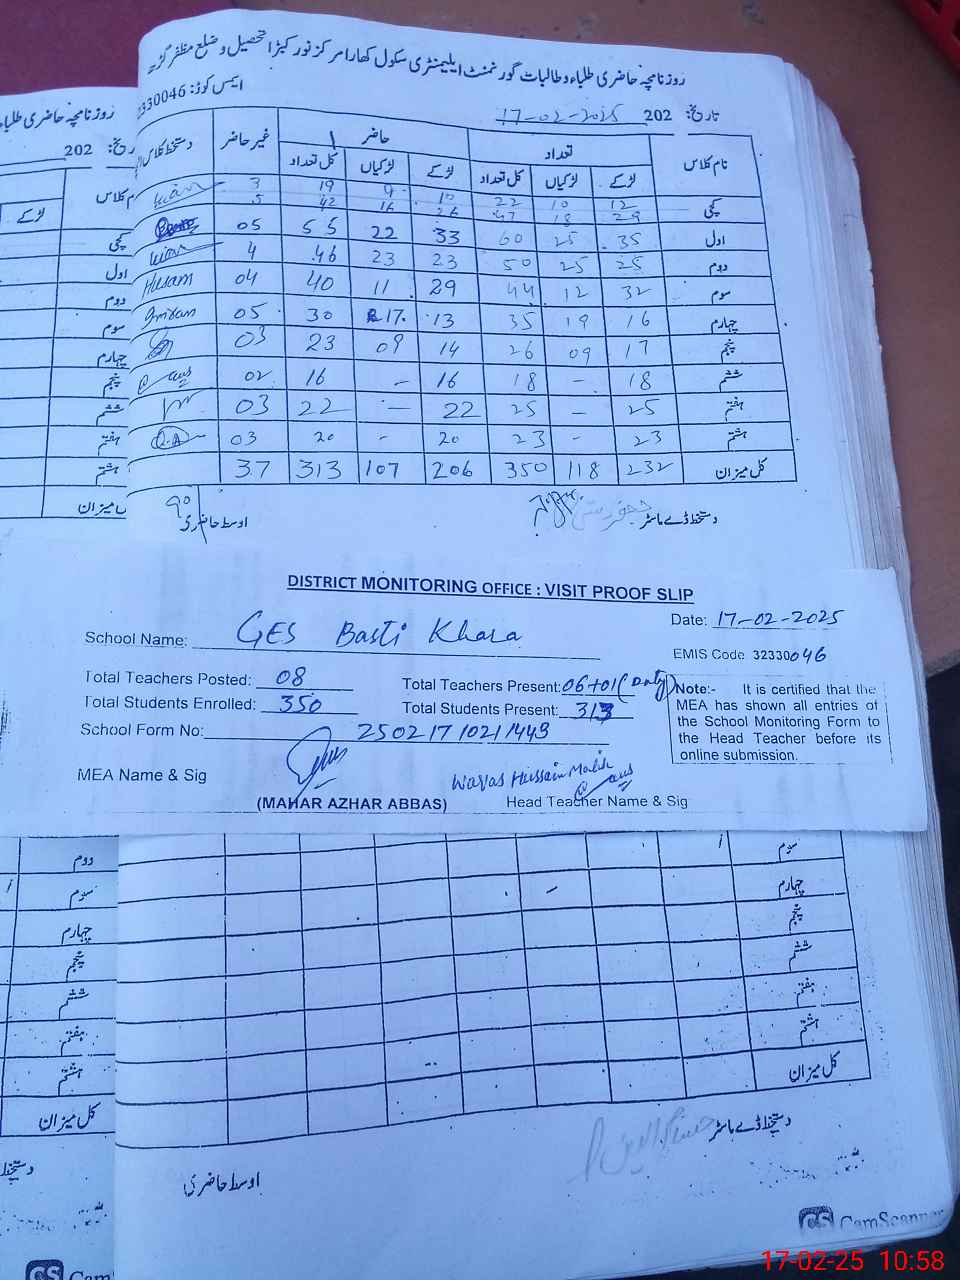 روزنامچہ حاضری طلباء و طالبات گورنمنٹ ایلیمنٹری سکول کھارا مرکز نور کبڑا تحصیل و ضلع مظفر گڑھ
ایمس کوڈ: 2330046
تاریخ: 202 17-02-2025
نام کلاس تعداد حاضر غیر حاضر دستخط کلاس
لڑکے لڑکیاں کل تعداد لڑکے لڑکیاں کل تعداد
کچی 12 10 22 10 9 19 3
29 18 47 26 16 42 5
اول 35 25 60 33 22 55 05
دوم 25 25 50 23 23 46 4
سوم 32 12 44 29 11 40 04 Husam
چہارم 16 19 35 13 17 30 05 Imran
پنجم 17 09 26 14 09 23 03
ششم 18 - 18 16 - 16 02
ہفتم 25 - 25 22 - 22 03
ہشتم 23 - 23 20 - 20 03
کل میزان 232 118 350 206 107 313 37
دستخط ڈے ماسٹر
اوسط حاضری 90
روزنامچہ حاضری طلباء
تاریخ: 202
نام کلاس
لڑکے
کچی
اول
دوم
سوم
چہارم
پنجم
ششم
ہفتم
ہشتم
کل میزان
DISTRICT MONITORING OFFICE : VISIT PROOF SLIP
Date: 17-02-2025
School Name: GES Basti Khara
EMIS Code 32330046
Total Teachers Posted: 08
Total Teachers Present: 06+01 (Duty)
Total Students Enrolled: 350
Total Students Present: 313
School Form No: 250217/021/443
Note:- It is certified that the
MEA has shown all entries of
the School Monitoring Form to
the Head Teacher before its
online submission.
MEA Name & Sig
(MAHAR AZHAR ABBAS)
Waqas Hussain Malik
Head Teacher Name & Sig
سوم
چہارم
پنجم
ششم
ہفتم
ہشتم
کل میزان
دستخط ڈے ماسٹر
اوسط حاضری
دوم
سوم
چہارم
پنجم
ششم
ہفتم
ہشتم
کل میزان
دستخط
CS CamScanner
CS Cam
17-02-25 10:58